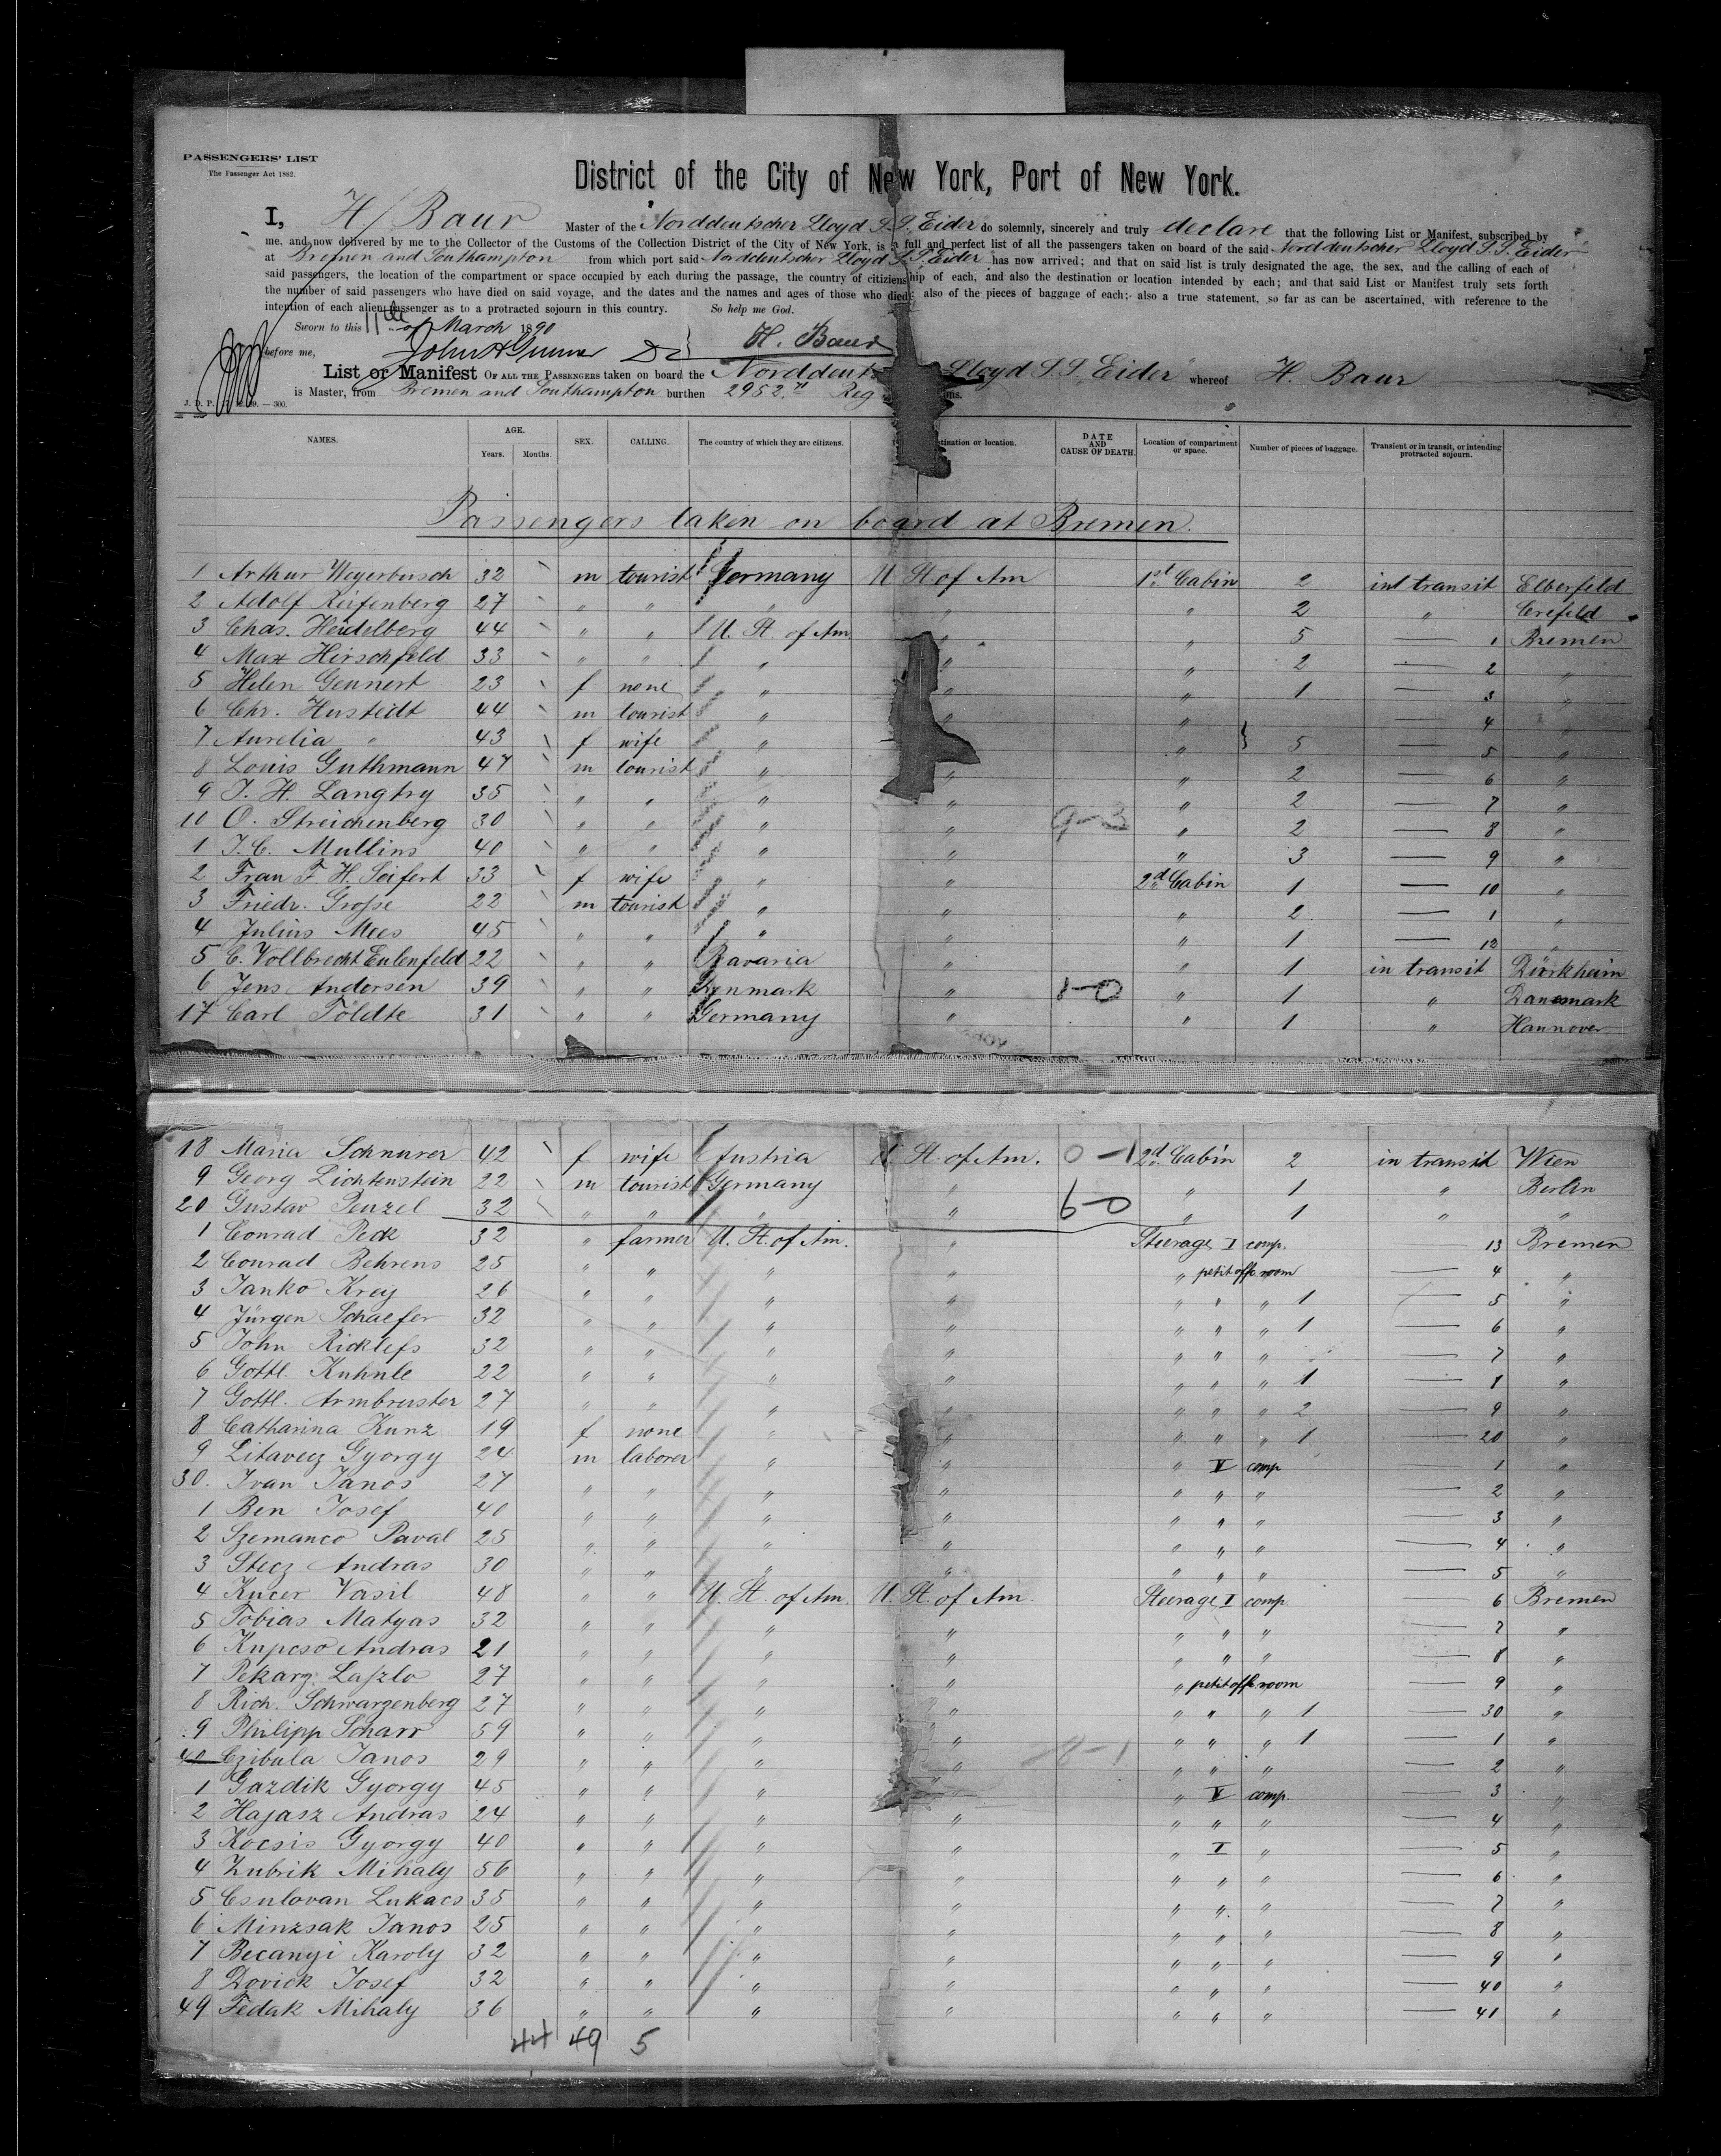 PASSENGERS' LIST
The Passenger Act 1882.
District of the City of New York, Port of New York.
I, H Baur Master of the Norddeutscher Lloyd S.S. Eider do solemnly, sincerely and truly declare that the following List or Manifest, subscribed by
me, and now delivered by me to the Collector of the Customs of the Collection District of the City of New York, is a full and perfect list of all the passengers taken on board of the said Norddeutscher Lloyd S.S. Eider
at Bremen and Southampton from which port said Norddeutscher Lloyd S.S. Eider has now arrived; and that on said list is truly designated the age, the sex, and the calling of each of
said passengers, the location of the compartment or space occupied by each during the passage, the country of citizenship of each, and also the destination or location intended by each; and that said List or Manifest truly sets forth
the number of said passengers who have died on said voyage, and the dates and the names and ages of those who died; also of the pieces of baggage of each; also a true statement, so far as can be ascertained, with reference to the
intention of each alien passenger as to a protracted sojourn in this country. So help me God.
Sworn to this 11th of March 1890
before me, H. Baur
List or Manifest OF ALL THE PASSENGERS taken on board the Lloyd S.S. Eider whereof H. Baur
is Master, from Bremen and Southampton burthen 2952 Reg
NAMES. AGE. Years. Months. SEX. CALLING. The country of which they are citizens. DATE AND CAUSE OF DEATH. Location of compartment or space. Number of pieces of baggage. Transient or in transit, or intending protracted sojourn.
Passengers taken on board at Bremen.
1 Arthur Weyerbusch 32 m tourist Germany U. St of Am 1st Cabin 2 int transit Elberfeld
2 Adolf Reifenberg 27 " " " " " 2 " Crefeld
3 Chas. Heidelberg 44 " " U. St. of Am " " 5 — 1 Bremen
4 Max Hirschfeld 33 " " " " " 2 — 2 "
5 Helen Gennert 23 f none " " " 1 — 3 "
6 Chr. Hustedt 44 m tourist " " " — 4 "
7 Aurelia " 43 f wife " " } 5 — 5 "
8 Louis Guthmann 47 m tourist " " " 2 — 6 "
9 J. H. Langtry 35 " " " " 2 — 7 "
10 O. Streichenberg 30 " " " " 9-3 " 2 — 8 "
1 J. C. Mullins 40 " " " " " 3 — 9 "
2 Frau F. H. Seifert 33 f wife " " 2d Cabin 1 — 10 "
3 Friedr. Grosse 22 m tourist " " " 2 — 1 "
4 Julius Mees 45 " " " " " 1 — 12 "
5 C. Vollbrecht Eulenfeld 22 " " Bavaria " " 1 in transit Dürkheim
6 Jens Andersen 39 " " Denmark " 1-0 " 1 " Danemark
17 Carl Töldte 31 " " Germany " " 1 " Hannover
18 Maria Schnurer 42 f wife Austria U. St. of Am. 0-1 2d Cabin 2 in transit Wien
9 Georg Lichtenstein 22 m tourist Germany " " 1 " Berlin
20 Gustav Penzel 32 " " " " 6-0 " 1 " "
1 Conrad Peck 32 " farmer U. St. of Am. " Steerage I comp. 13 Bremen
2 Conrad Behrens 25 " " " " " petit off. room — 4 "
3 Janko Krey 26 " " " " " " " 1 — 5 "
4 Jürgen Schaefer 32 " " " " " " " 1 — 6 "
5 John Ricklefs 32 " " " " " " " — 7 "
6 Gottl. Kuhnle 22 " " " " " " " 1 — 8 "
7 Gottl. Armbruster 27 " " " " " " " 2 — 9 "
8 Catharina Kunz 19 f none " " " " " 1 — 20 "
9 Litavecz Gyorgy 24 m laborer " " " V comp — 1 "
30. Ivan Janos 27 " " " " " " " — 2 "
1 Ben Josef 40 " " " " " " " — 3 "
2 Szemanco Paval 25 " " " " " " " — 4 "
3 Stecz Andras 30 " " " " " " " — 5 "
4 Kucer Vasil 48 " " U. St. of Am. U. St. of Am. Steerage I comp. — 6 Bremen
5 Tobias Matyas 32 " " " " " " " — 7 "
6 Kupcso Andras 21 " " " " " " " — 8 "
7 Pekarz Laszlo 27 " " " " " petit off. room — 9 "
8 Rich. Schwarzenberg 27 " " " " " " " 1 — 30 "
9 Philipp Scharr 59 " " " " " " " 1 — 1 "
40 Czibula Janos 29 " " " " " " " — 2 "
1 Gazdik Gyorgy 45 " " " " " V comp. — 3 "
2 Hajasz Andras 24 " " " " " " " — 4 "
3 Kocsis Gyorgy 40 " " " " " I " — 5 "
4 Zubrik Mihaly 56 " " " " " " " — 6 "
5 Csulovan Lukacs 35 " " " " " " " — 7 "
6 Minzsak Janos 25 " " " " " " " — 8 "
7 Becanyi Karoly 32 " " " " " " " — 9 "
8 Dovick Josef 32 " " " " " " " — 40 "
49 Fedak Mihaly 36 " " " " " " " — 41 "
44 49 5